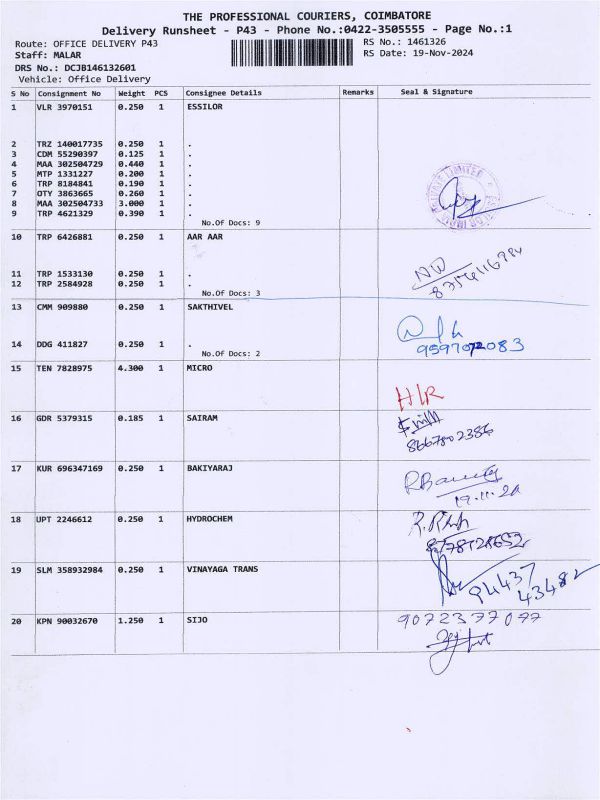 THE PROFESSIONAL COURIERS, COIMBATORE
Delivery Runsheet - P43 - Phone No.:0422-3505555 - Page No.:1
Route: OFFICE DELIVERY P43 RS No.: 1461326
Staff: MALAR RS Date: 19-Nov-2024
DRS No.: DCJB146132601
Vehicle: Office Delivery
S No Consignment No Weight PCS Consignee Details Remarks Seal & Signature
1 VLR 3970151 0.250 1 ESSILOR
2 TRZ 140017735 0.250 1 .
3 CDM 55290397 0.125 1 .
4 MAA 302504729 0.440 1 .
5 MTP 1331227 0.200 1 .
6 TRP 8184841 0.190 1 .
7 OTY 3863665 0.260 1 .
8 MAA 302504733 3.000 1 .
9 TRP 4621329 0.390 1 .
No.Of Docs: 9
10 TRP 6426881 0.250 1 AAR AAR
11 TRP 1533130 0.250 1 .
12 TRP 2584928 0.250 1 .
No.Of Docs: 3
13 CMM 909880 0.250 1 SAKTHIVEL
14 DDG 411827 0.250 1 .
9597072083
No.Of Docs: 2
15 TEN 7828975 4.300 1 MICRO
16 GDR 5379315 0.185 1 SAIRAM
8667802386
17 KUR 696347169 0.250 1 BAKIYARAJ
18 UPT 2246612 0.250 1 HYDROCHEM
19 SLM 358932984 0.250 1 VINAYAGA TRANS
94437
43482
20 KPN 90032670 1.250 1 SIJO 9072377077